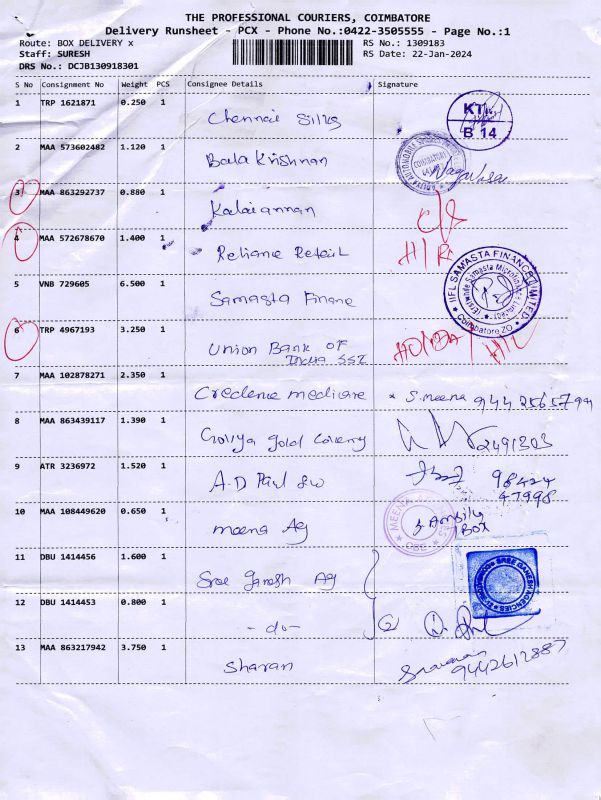 THE PROFESSIONAL COURIERS, COIMBATORE
Delivery Runsheet - PCX - Phone No.:0422-3505555 - Page No.:1
Route: BOX DELIVERY x
RS No.: 1309183
Staff: SURESH
RS Date: 22-Jan-2024
DRS No.: DCJB130918301
S No Consignment No Weight PCS Consignee Details Signature
1 TRP 1621871 0.250 1 Chennai Silks
B 14
2 MAA 573602482 1.120 1 Bala Krishnan
3 MAA 863292737 0.880 1 Kalaiannan
4 MAA 572678670 1.400 1 Reliane Reteil
5 VNB 729605 6.500 1 Samasta Finane
IIFL SAMASTA FINANCE LIMITED
Coimbatore ZO
6 TRP 4967193 3.250 1 Union Bank OF
India SSI
7 MAA 102878271 2.350 1 Credence medicare * S.meena
8 MAA 863439117 1.390 1 gold 2491303
9 ATR 3236972 1.520 1 A.D 98424
47998
10 MAA 108449620 0.650 1 meena Ag
BOX
11 DBU 1414456 1.600 1 Sree Ganesh Ag
SREE GANESH AGENCIES
12 DBU 1414453 0.800 1 - do - 2
13 MAA 863217942 3.750 1 Sharan 9442612887